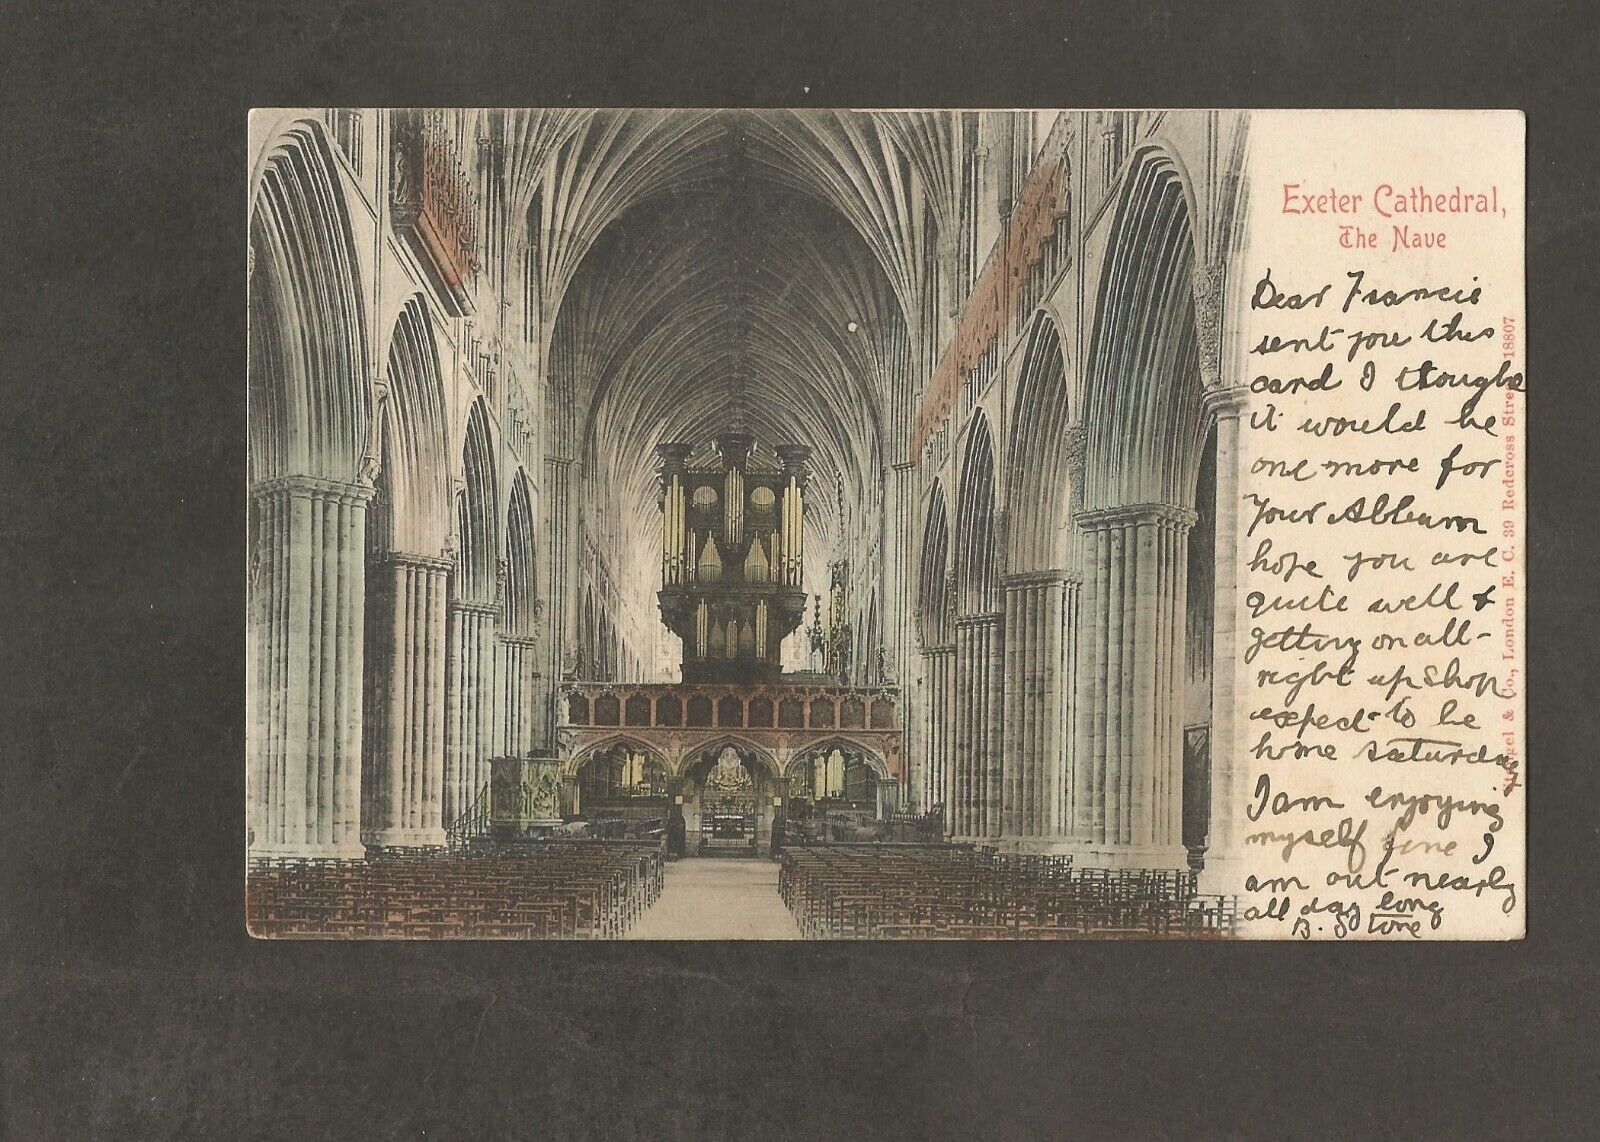 Exeter Cathedral,
The Nave
Dear Francis
sent you this
card I thought
it would be
one more for
Your Albeum
hope you are
quite well &
getting on all-
right up Shop
expect to be
home saturday
I am enjoying
myself fine I
am out nearly
all day long
B. Stone
& Co., London E. C. 39 Redcross Street 18807